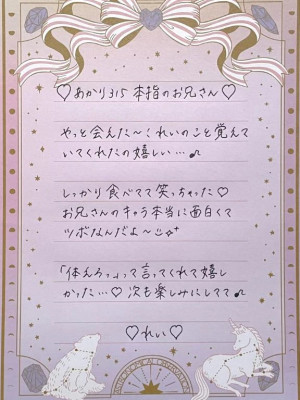 ♡あかり315 本指のお兄さん♡
やっと会えた〜！れいのこと覚えて
いてくれたの嬉しい…♪
しっかり食べてて笑っちゃった♡
お兄さんのキャラ本当に面白くて
ツボなんだよ〜
「休えろっ」って言ってくれて嬉し
かった…♡次も楽しみにしてて♪
♡れい♡